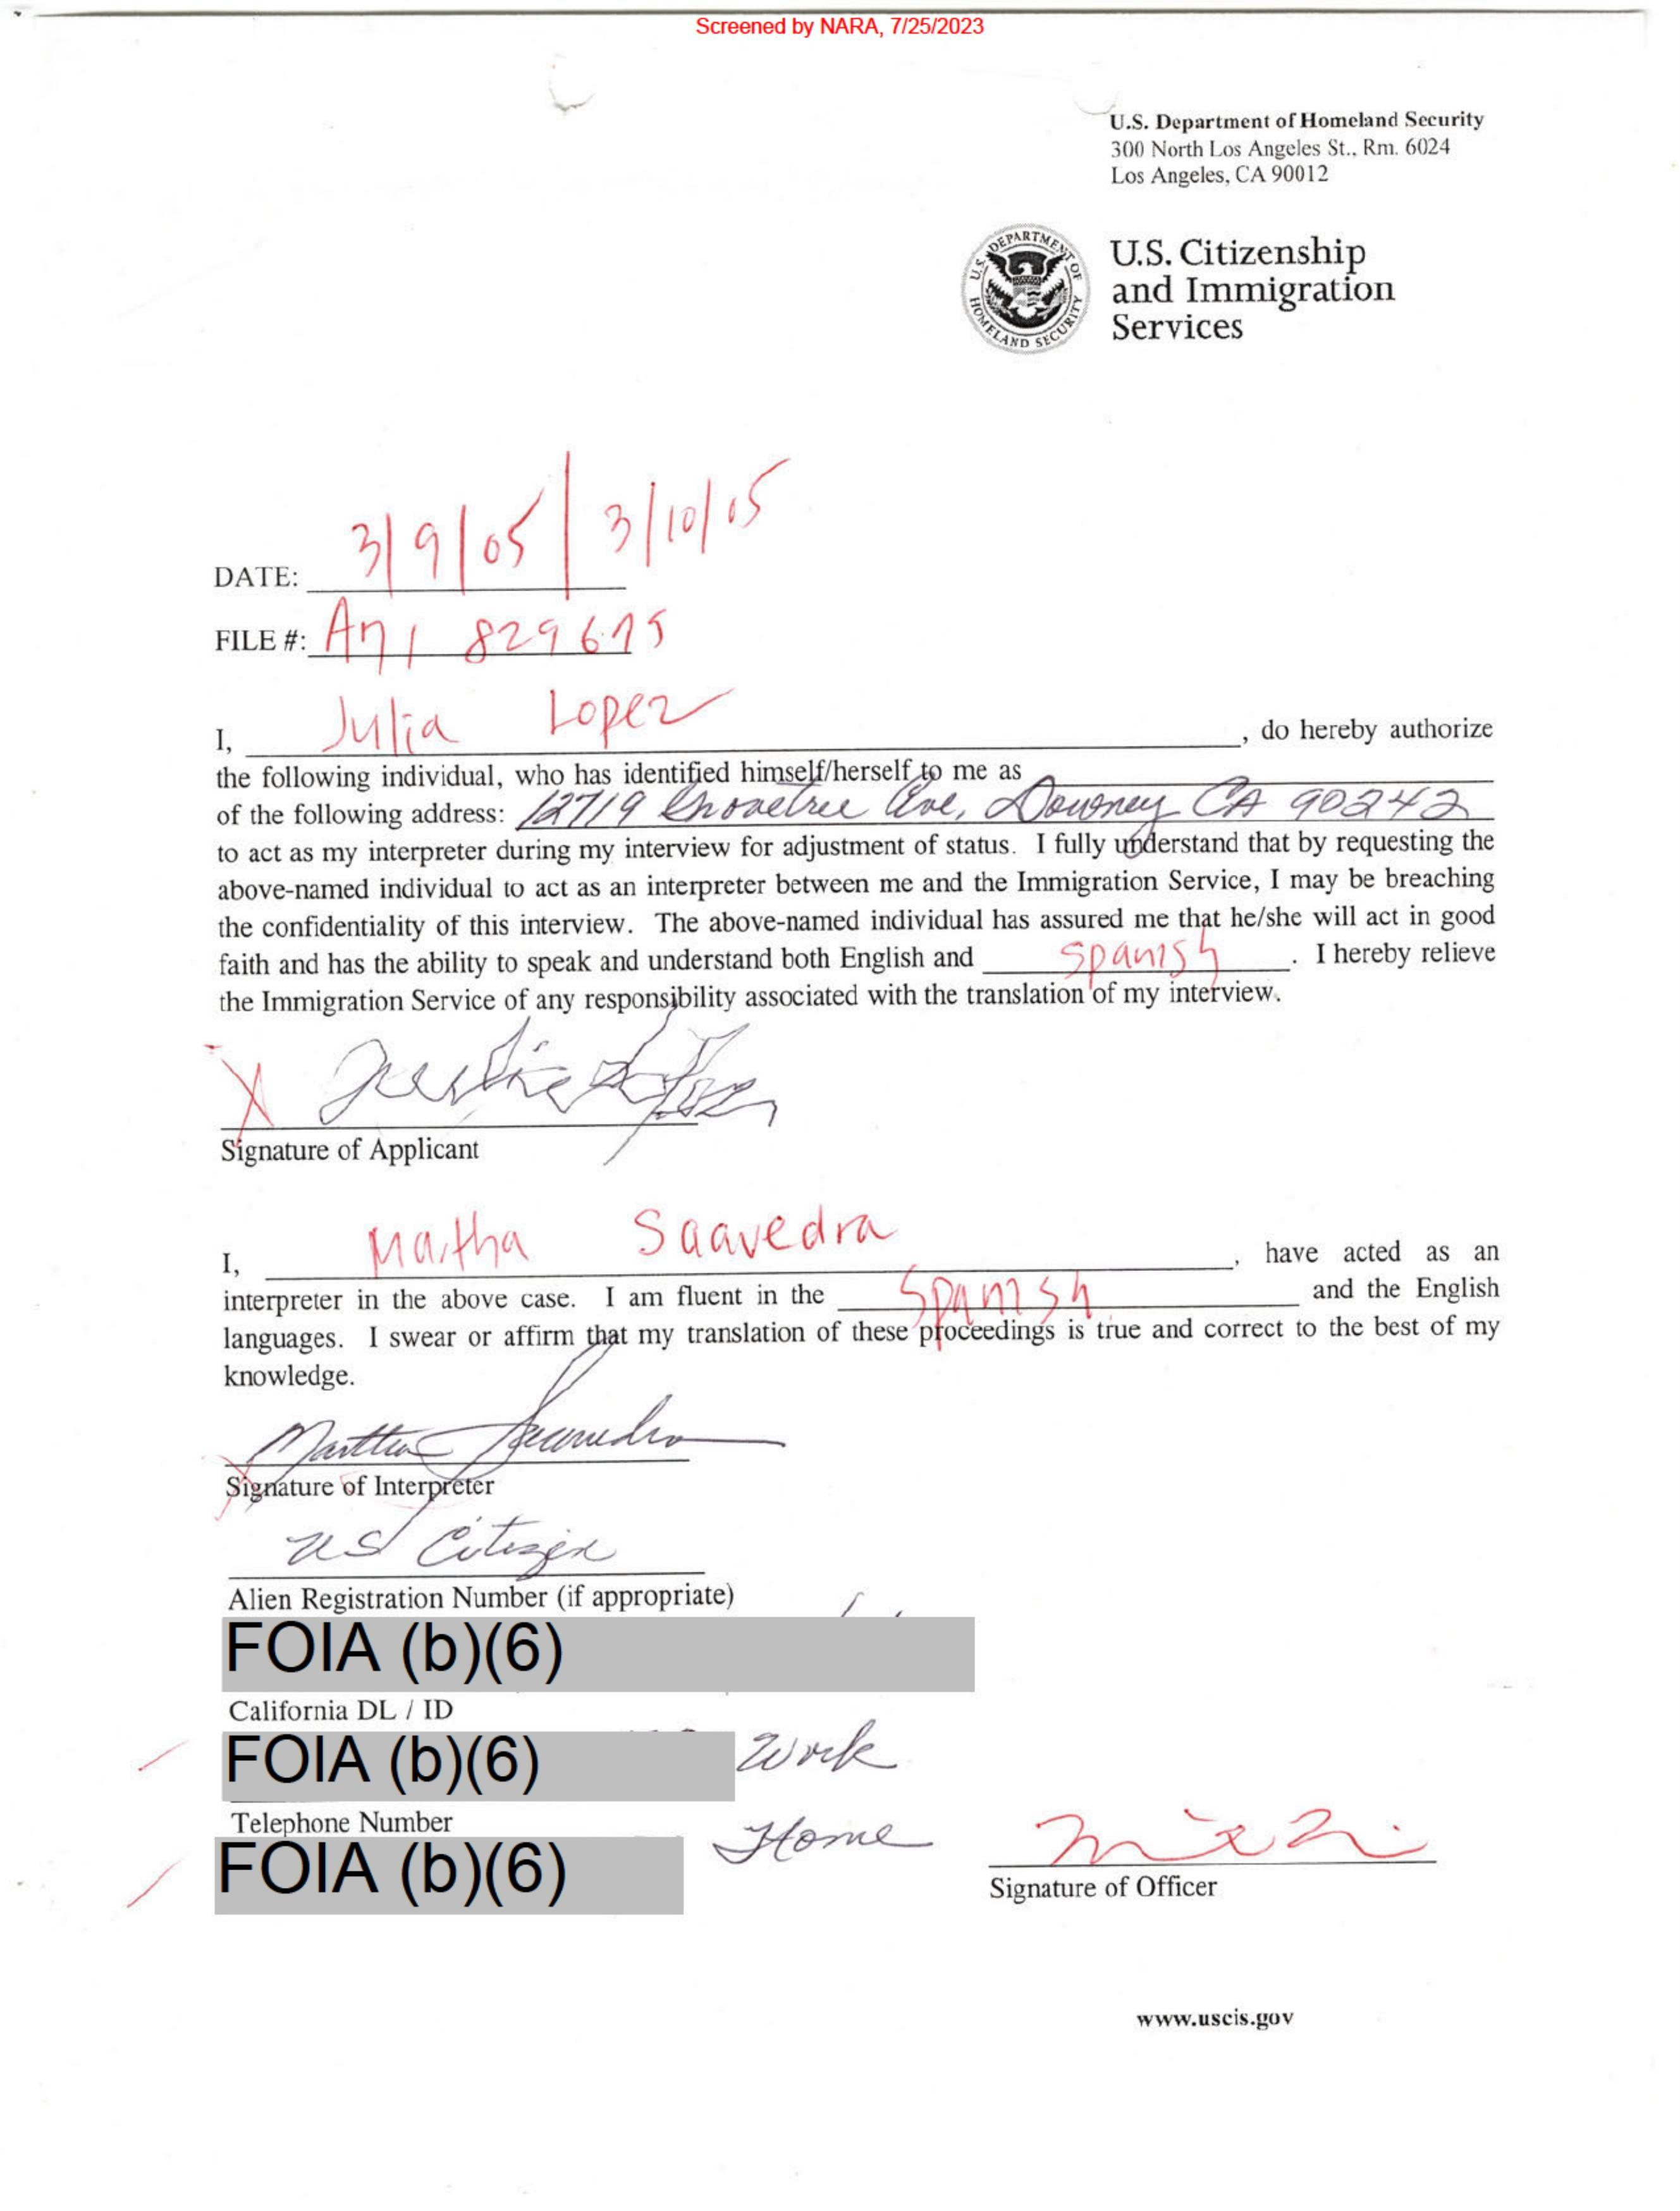 Screened by NARA, 7/25/2023
U.S. Department of Homeland Security
300 North Los Angeles St., Rm. 6024
Los Angeles, CA 90012
U.S. DEPARTMENT OF HOMELAND SECURITY
U.S. Citizenship
and Immigration
Services
DATE: 3/9/05 | 3/10/05
FILE #: A71 829675
I, Julia Lopez, do hereby authorize
the following individual, who has identified himself/herself to me as
of the following address: 12719 Grovetree Ave, Downey CA 90242
to act as my interpreter during my interview for adjustment of status. I fully understand that by requesting the
above-named individual to act as an interpreter between me and the Immigration Service, I may be breaching
the confidentiality of this interview. The above-named individual has assured me that he/she will act in good
faith and has the ability to speak and understand both English and Spanish. I hereby relieve
the Immigration Service of any responsibility associated with the translation of my interview.
X
Signature of Applicant
I, Martha Saavedra, have acted as an
interpreter in the above case. I am fluent in the Spanish and the English
languages. I swear or affirm that my translation of these proceedings is true and correct to the best of my
knowledge.
Martha Saavedra
Signature of Interpreter
US Citizen
Alien Registration Number (if appropriate)
FOIA (b)(6)
California DL / ID
FOIA (b)(6) Work
Telephone Number
FOIA (b)(6) Home
Signature of Officer
www.uscis.gov